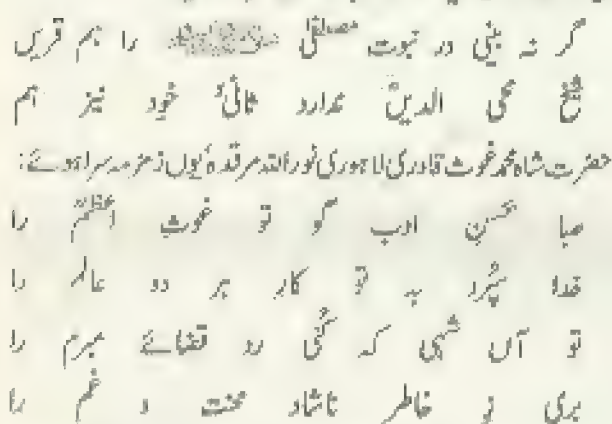 گر نہ بینی در نبوت مصطفیٰ ﷺ را ہم قریں
شیخ محی الدینؒ ندارد ثانیؑ خود نیز ہم
حضرت شاہ محمد غوث قادری لاہوری نور اللہ مرقدہٗ یوں زمزمہ سرا ہوئے:
صبا بحسنِ ادب گو تو غوثِ اعظمؒ را
خدا سُپرد بہ تو کارِ ہر دو عالم را
تو آں شہی کہ کُنی رد قضائے مبرم را
بری ز خاطرِ ناشاد محنت و غم را